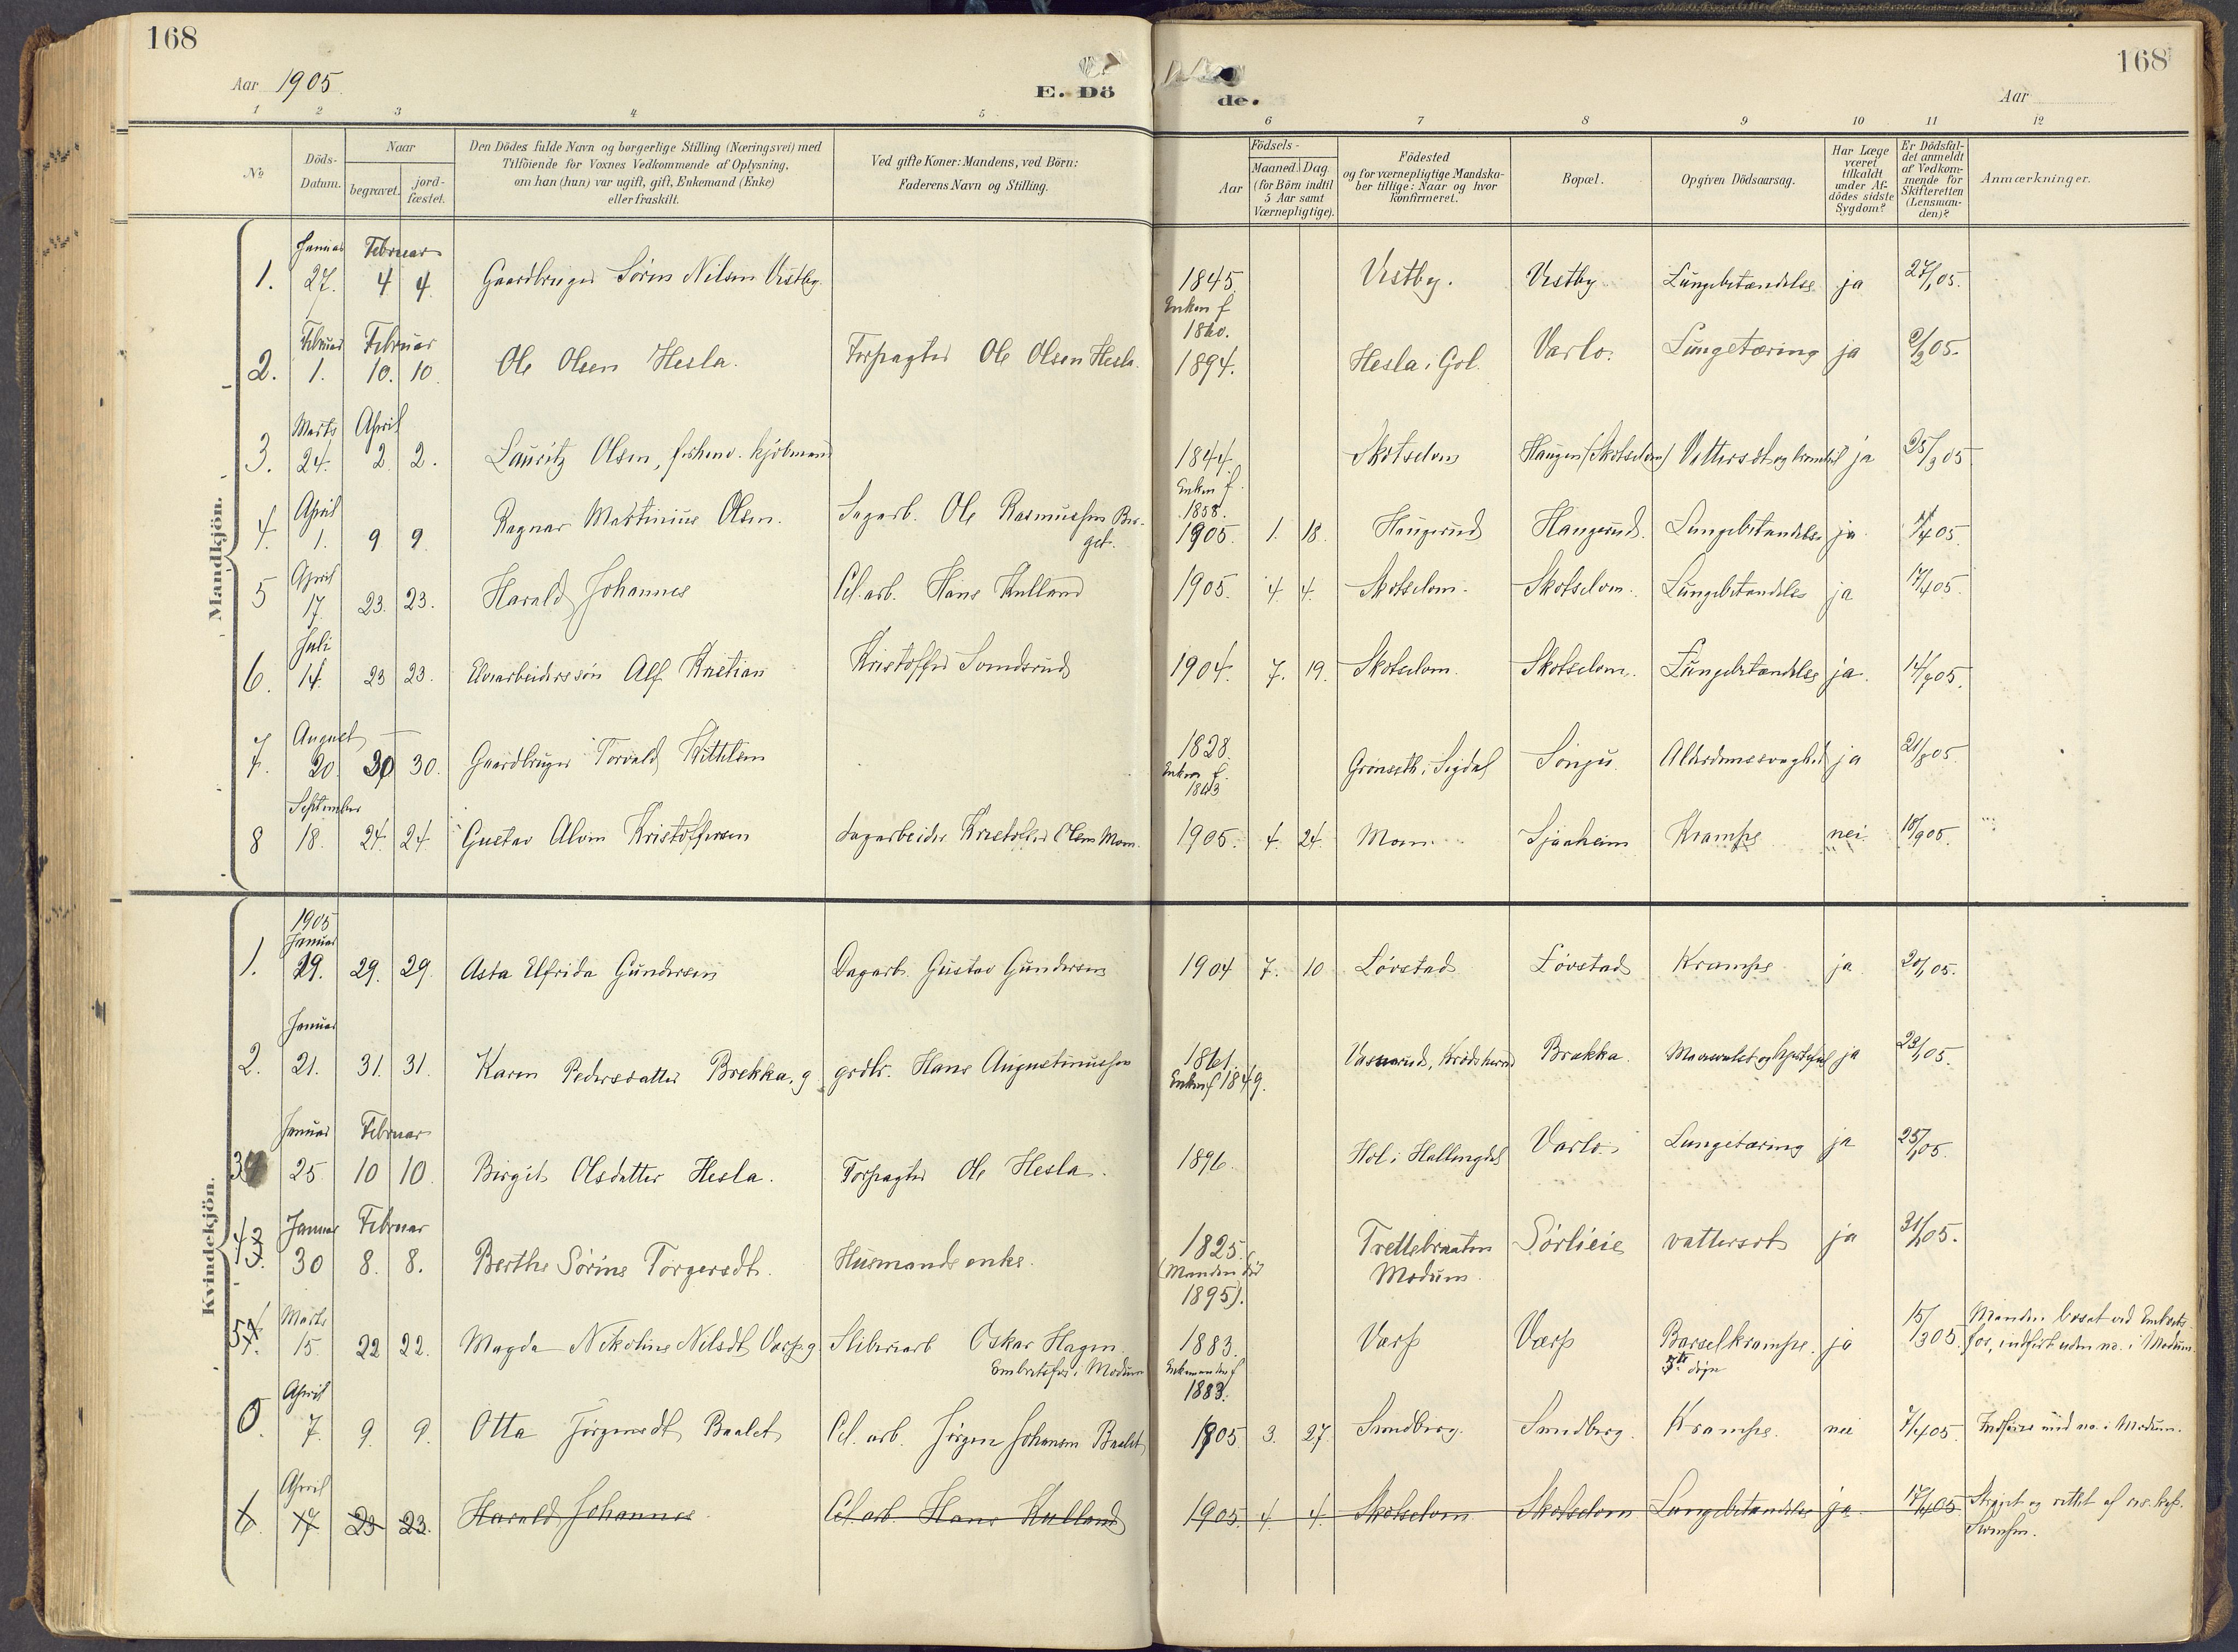 168
Aar 1905
E. Dö
de.
168
Aar
1 2 3 4 5 6 7 8 9 10 11 12
№
Döds-
Datum.
Naar
begravet.
jord-
fæstet.
Den Dödes fulde Navn og borgerlige Stilling (Næringsvei) med
Tilföiende for Voxnes Vedkommende af Oplysning,
om han (hun) var ugift, gift, Enkemand (Enke)
eller fraskilt.
Ved gifte Koner: Mandens, ved Börn:
Faderens Navn og Stilling.
Födsels-
Aar
Maaned. Dag.
(for Börn indtil
5 Aar samt
Værnepligtige).
Födested
og for værnepligtige Mandska-
ber tillige: Naar og hvor
konfirmeret.
Bopæl.
Opgiven Dödsaarsag.
Har Læge
været
tilkaldt
under Af-
dödes sidste
Sygdom?
Er Dödsfal-
det anmeldt
af Vedkom-
mende for
Skifteretten
(Lensman-
den)?
Anmærkninger.
Mandkjön.
Januar Februar
1. 27. 4 4 Gaardbruger Sören Nilsen Vestby. 1845. Vestby. Vestby Lungebetændelse ja 27/1 05.
Enken f
1860.
Februar Februar
2. 1. 10. 10. Ole Olsen Hesla. Forpagter Ole Olsen Hesla. 1894. Hesla i Gol. Varlo. Lungetæring ja 2/2 05.
Marts April
3. 24. 2 2. Lauritz Olsen, forhenv. kjöbmand 1844. Skotselven Haugen (Skotselven) Vattersot og ja 25/3 05
Enken f.
1858.
April
4. 1. 9 9. Ragnar Martinius Olsen. Sagarb. Ole Rasmussen Ber-
get. 1905. 1. 18. Haugerud Haugerud. Lungebetændelse ja 1/4 05.
April
5 17. 23. 23. Harald Johannes Cel. arb. Hans Kulland 1905. 4. 4. Skotselven. Skotselven. Lungebetændelse ja 17/4 05.
Juli
6. 14. 23 23. Elvearbeidersön Alf Kristian Kristoffer Sandsrud 1904. 7. 19. Skotselven. Skotselven. Lungebetændelse ja. 14/7 05.
August
7. 20. 30 30. Gaardbruger Torvald Kittilsen 1828. Grönseth i Sigdal Sönju Alderdomssvaghed ja 21/8 05.
Enken f.
1843
September
8 18. 24. 24. Gustav Alvin Kristoffersen Sagarbeider Kristoffer Olsen Moen. 1905. 4. 24. Moen Sjaaheim Krampe nei 18/9 05.
Kvindekjön.
1905
Januar
1. 19. 29. 29. Asta Elfrida Gundersen Dagarb. Gustav Gundersen 1904 7. 10 Lövstad Lövstad Krampe ja 20/1 05.
Januar
2. 21. 31. 31. Karen Pedersdatter Brekka. g grdbr. Hans Augustinussen 1861. Krödsherred Brekka. ja 23/1 05.
Enkem f 1849.
Januar Februar
3 25 10 10. Birgit Olsdatter Hesla. Forpagter Ole Hesla. 1896. Hol i Hallingdal Varlo. Lungetæring ja 25/1 05.
Januar Februar
4 3. 30 8. 8. Berthe Sörine Torgersdt. Husmands enke. 1825. Trettebraaten Sörlieie vattersot ja 31/1 05.
(Manden död Modum.
1895).
Marts
5 4. 15. 22 22. Magda Nikoline Nilsdt. Varp. g Sliberiarb Oskar Hagen. 1883. Varp Varp Barselkrampe. ja 15/3 05
Embretsfos i Modum Enkemanden f 5te dögn
1883.
Manden bosat ved Embrets-
fos, indfört uden no. i Modum.
April
0. 7. 9. 9. Otta Jörgensdt Baalet Cel. arb. Jörgen Johansen Baalet 1905 3. 27 Sundberg. Sundberg. Krampe. nei 7/4 05 Indföres med no. i Modum.
April
6. 17. 23 23. Harald Johannes Cel. arb. Hans Kulland 1905. 4. 4. Skotselven Skotselven Lungebetændelse ja 17/4 05 Ströget og rettet af res. kap.